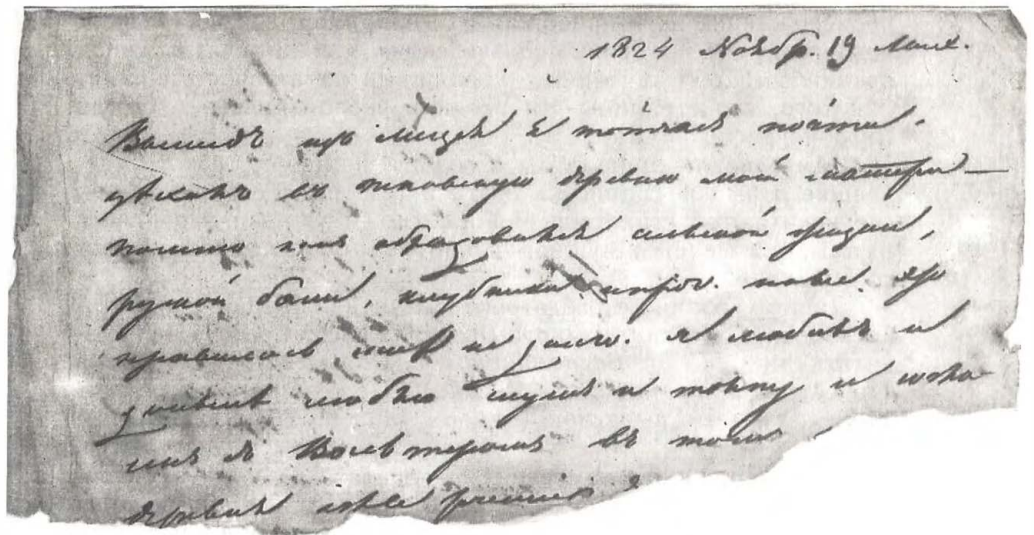 1824 Ноябр. 19 Мих.
Вышед из Лицея я тотчас почти
уехал в Псковскую деревню моей матери —
помню как обрадовался сельской жизни,
русской бани, клубники и проч. но все это
нравилось мне не долго. Я любил и
доныне люблю шум и толпу и согла
шен с Вольтером в том
деревня есть